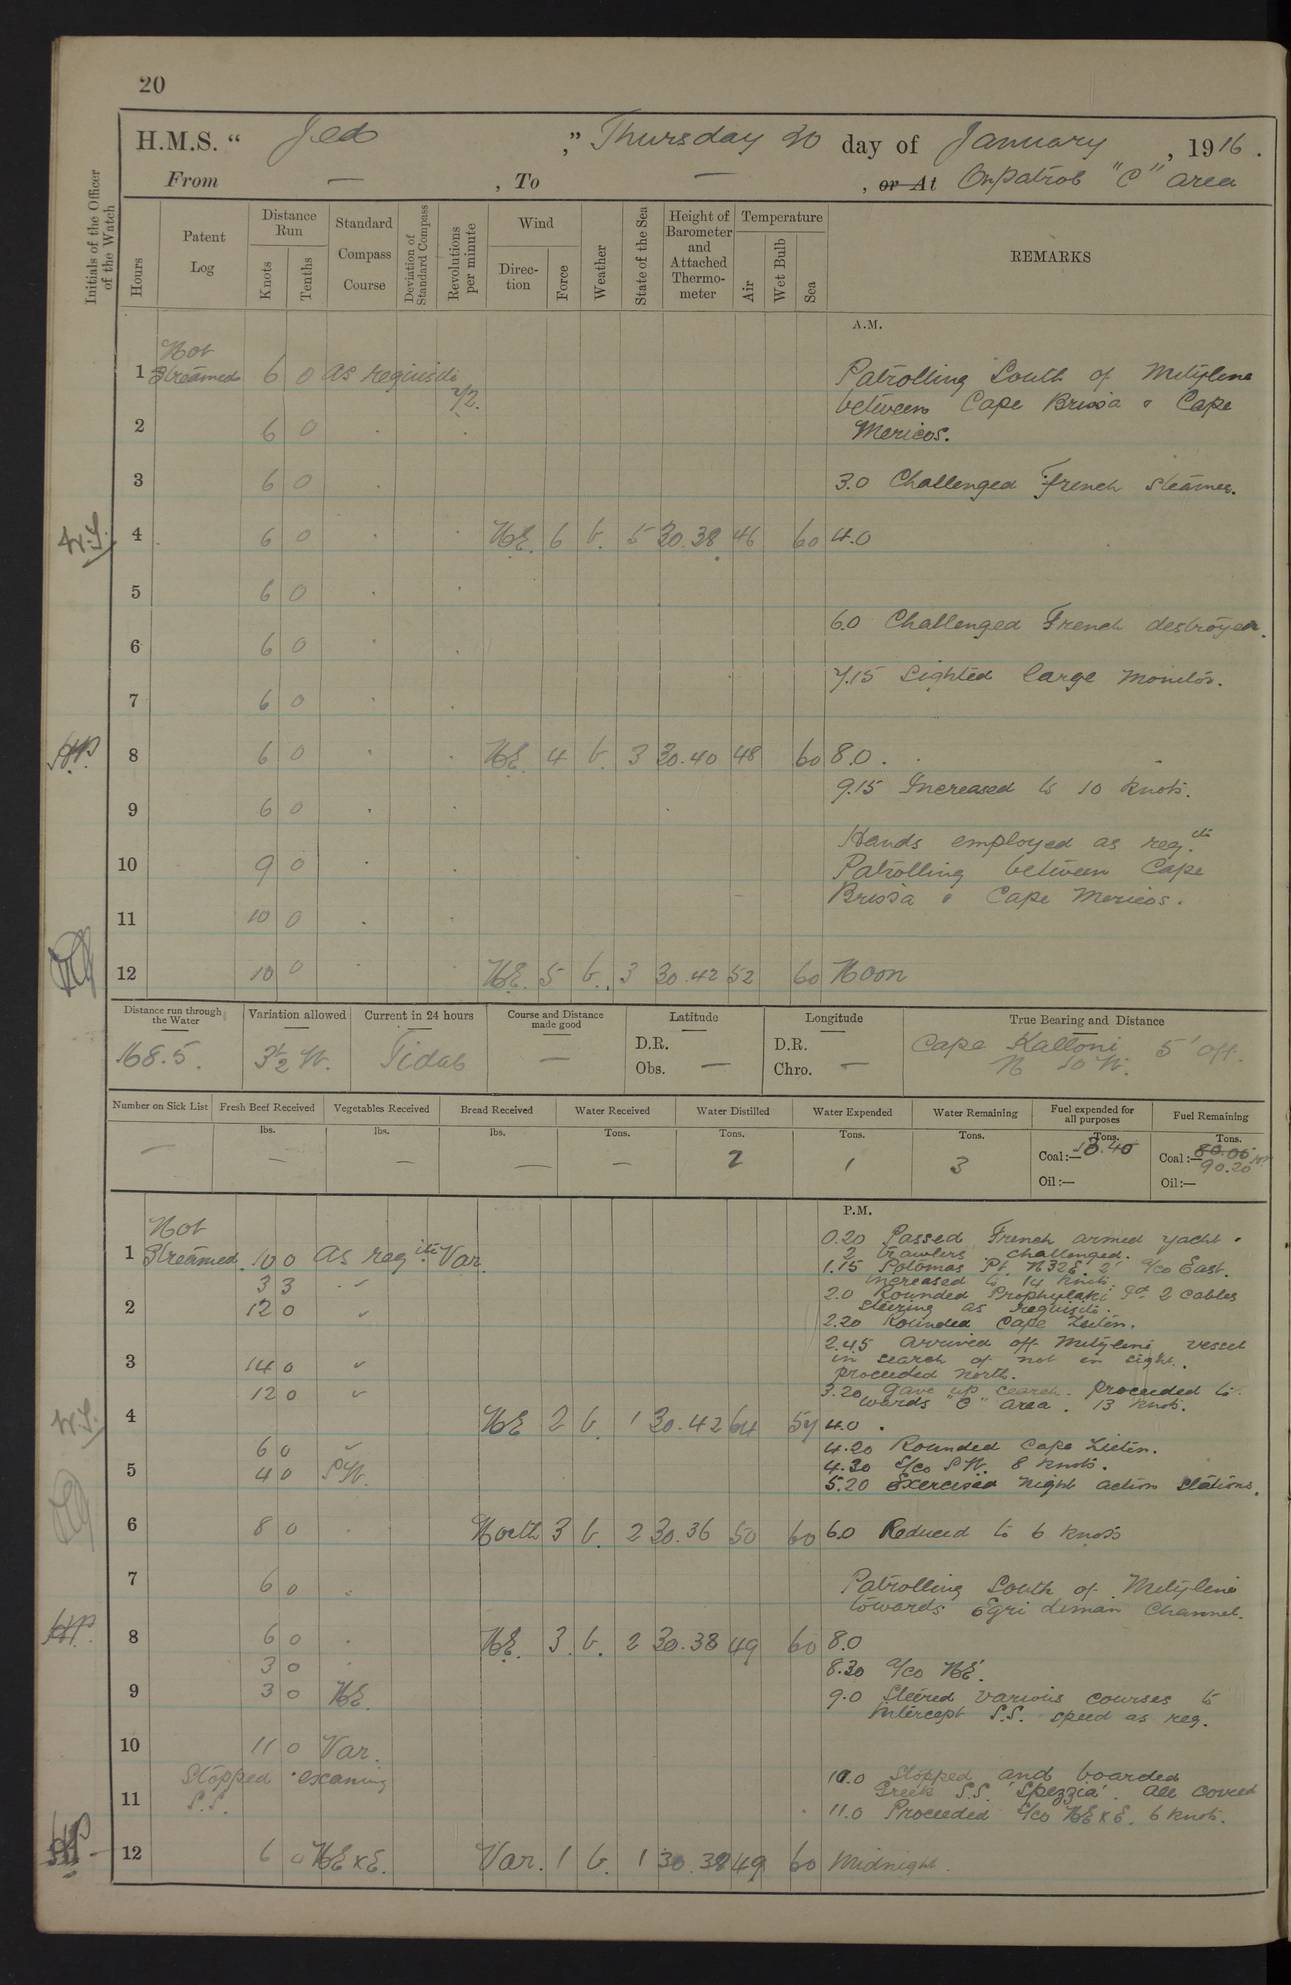 20
H.M.S. “ Jed ,” Thursday 20 day of January , 1916 .
From — , To — , or At On patrol "C" area
Initials of the Officer of the Watch
Hours
Patent Log
Distance Run
Knots
Tenths
Standard Compass Course
Deviation of Standard Compass
Revolutions per minute
Wind
Direc-tion
Force
Weather
State of the Sea
Height of Barometer and Attached Thermo-meter
Temperature
Air
Wet Bulb
Sea
REMARKS
A.M.
Not
1 Streamed 6 0 as requisite Patrolling South of Mitylene
between Cape Brissa & Cape
2 6 0 Mericos.
3 6 0 3.0 Challenged French steamer.
4 6 0 NE. 6 b. 5 30.38 46 60 4.0
5 6 0
6.0 Challenged French destroyer.
6 6 0
7.15 Sighted large monitor.
7 6 0
8 6 0 NE. 4 b. 3 30.40 48 60 8.0.
9.15 Increased to 10 knots.
9 6 0
Hands employed as reqite.
10 9 0 Patrolling between Cape
Brissa & Cape Mericos.
11 10 0
12 10 0 NE. 5 b. 3 30.42 52 60 Noon
Distance run through the Water
168.5.
Variation allowed
3½ W.
Current in 24 hours
Tidal
Course and Distance made good
—
Latitude
D.R.
Obs. —
Longitude
D.R.
Chro. —
True Bearing and Distance
Cape Kalloni 5' off.
N 50 W.
Number on Sick List
—
Fresh Beef Received
lbs.
—
Vegetables Received
lbs.
—
Bread Received
lbs.
—
Water Received
Tons.
—
Water Distilled
Tons.
2
Water Expended
Tons.
1
Water Remaining
Tons.
3
Fuel expended for all purposes
Tons.
Coal:— 13.40
Oil:—
Fuel Remaining
Tons.
Coal:— 80.00
90.20
Oil:—
P.M.
Not
0.20 Passed French armed yacht &
1 Streamed. 10 0 as reqite. Var. 2 trawlers challenged.
1.15 Potomas Pt. N32E 2' a/co East.
3 3 increased to 14 knots.
2.0 Rounded Prophylaki Pt. 2 cables
2 12 0 steering as requisite.
2.20 Rounded Cape Zietin.
2.45 arrived off Mitylene vessel
3 14 0 in search of not in sight.
proceeded north.
12 0 3.20 Gave up search. Proceeded to-
wards "C" area. 13 knots.
4 NE 2 b. 1 30.42 64 57 4.0.
6 0 4.20 Rounded Cape Zietin.
5 4 0 SW. 4.30 a/co SW. 8 knots.
5.20 Exercised night action stations.
6 8 0 North 3 b. 2 30.36 50 60 6.0 Reduced to 6 knots
7 6 0 Patrolling South of Mitylene
towards Egri Liman Channel.
8 6 0 NE. 3. b. 2 30.38 49 60 8.0
3 0 8.30 a/co NE.
9 3 0 NE. 9.0 Steered various courses to
intercept S.S. speed as req.
10 11 0 Var.
Stopped examing 10.0 Stopped and boarded
11 S.S. Greek S.S. 'Spezzia'. All correct
11.0 Proceeded a/co NE x E. 6 knots.
12 6 0 NE x E. Var. 1 b. 1 30.38 49 60 Midnight.